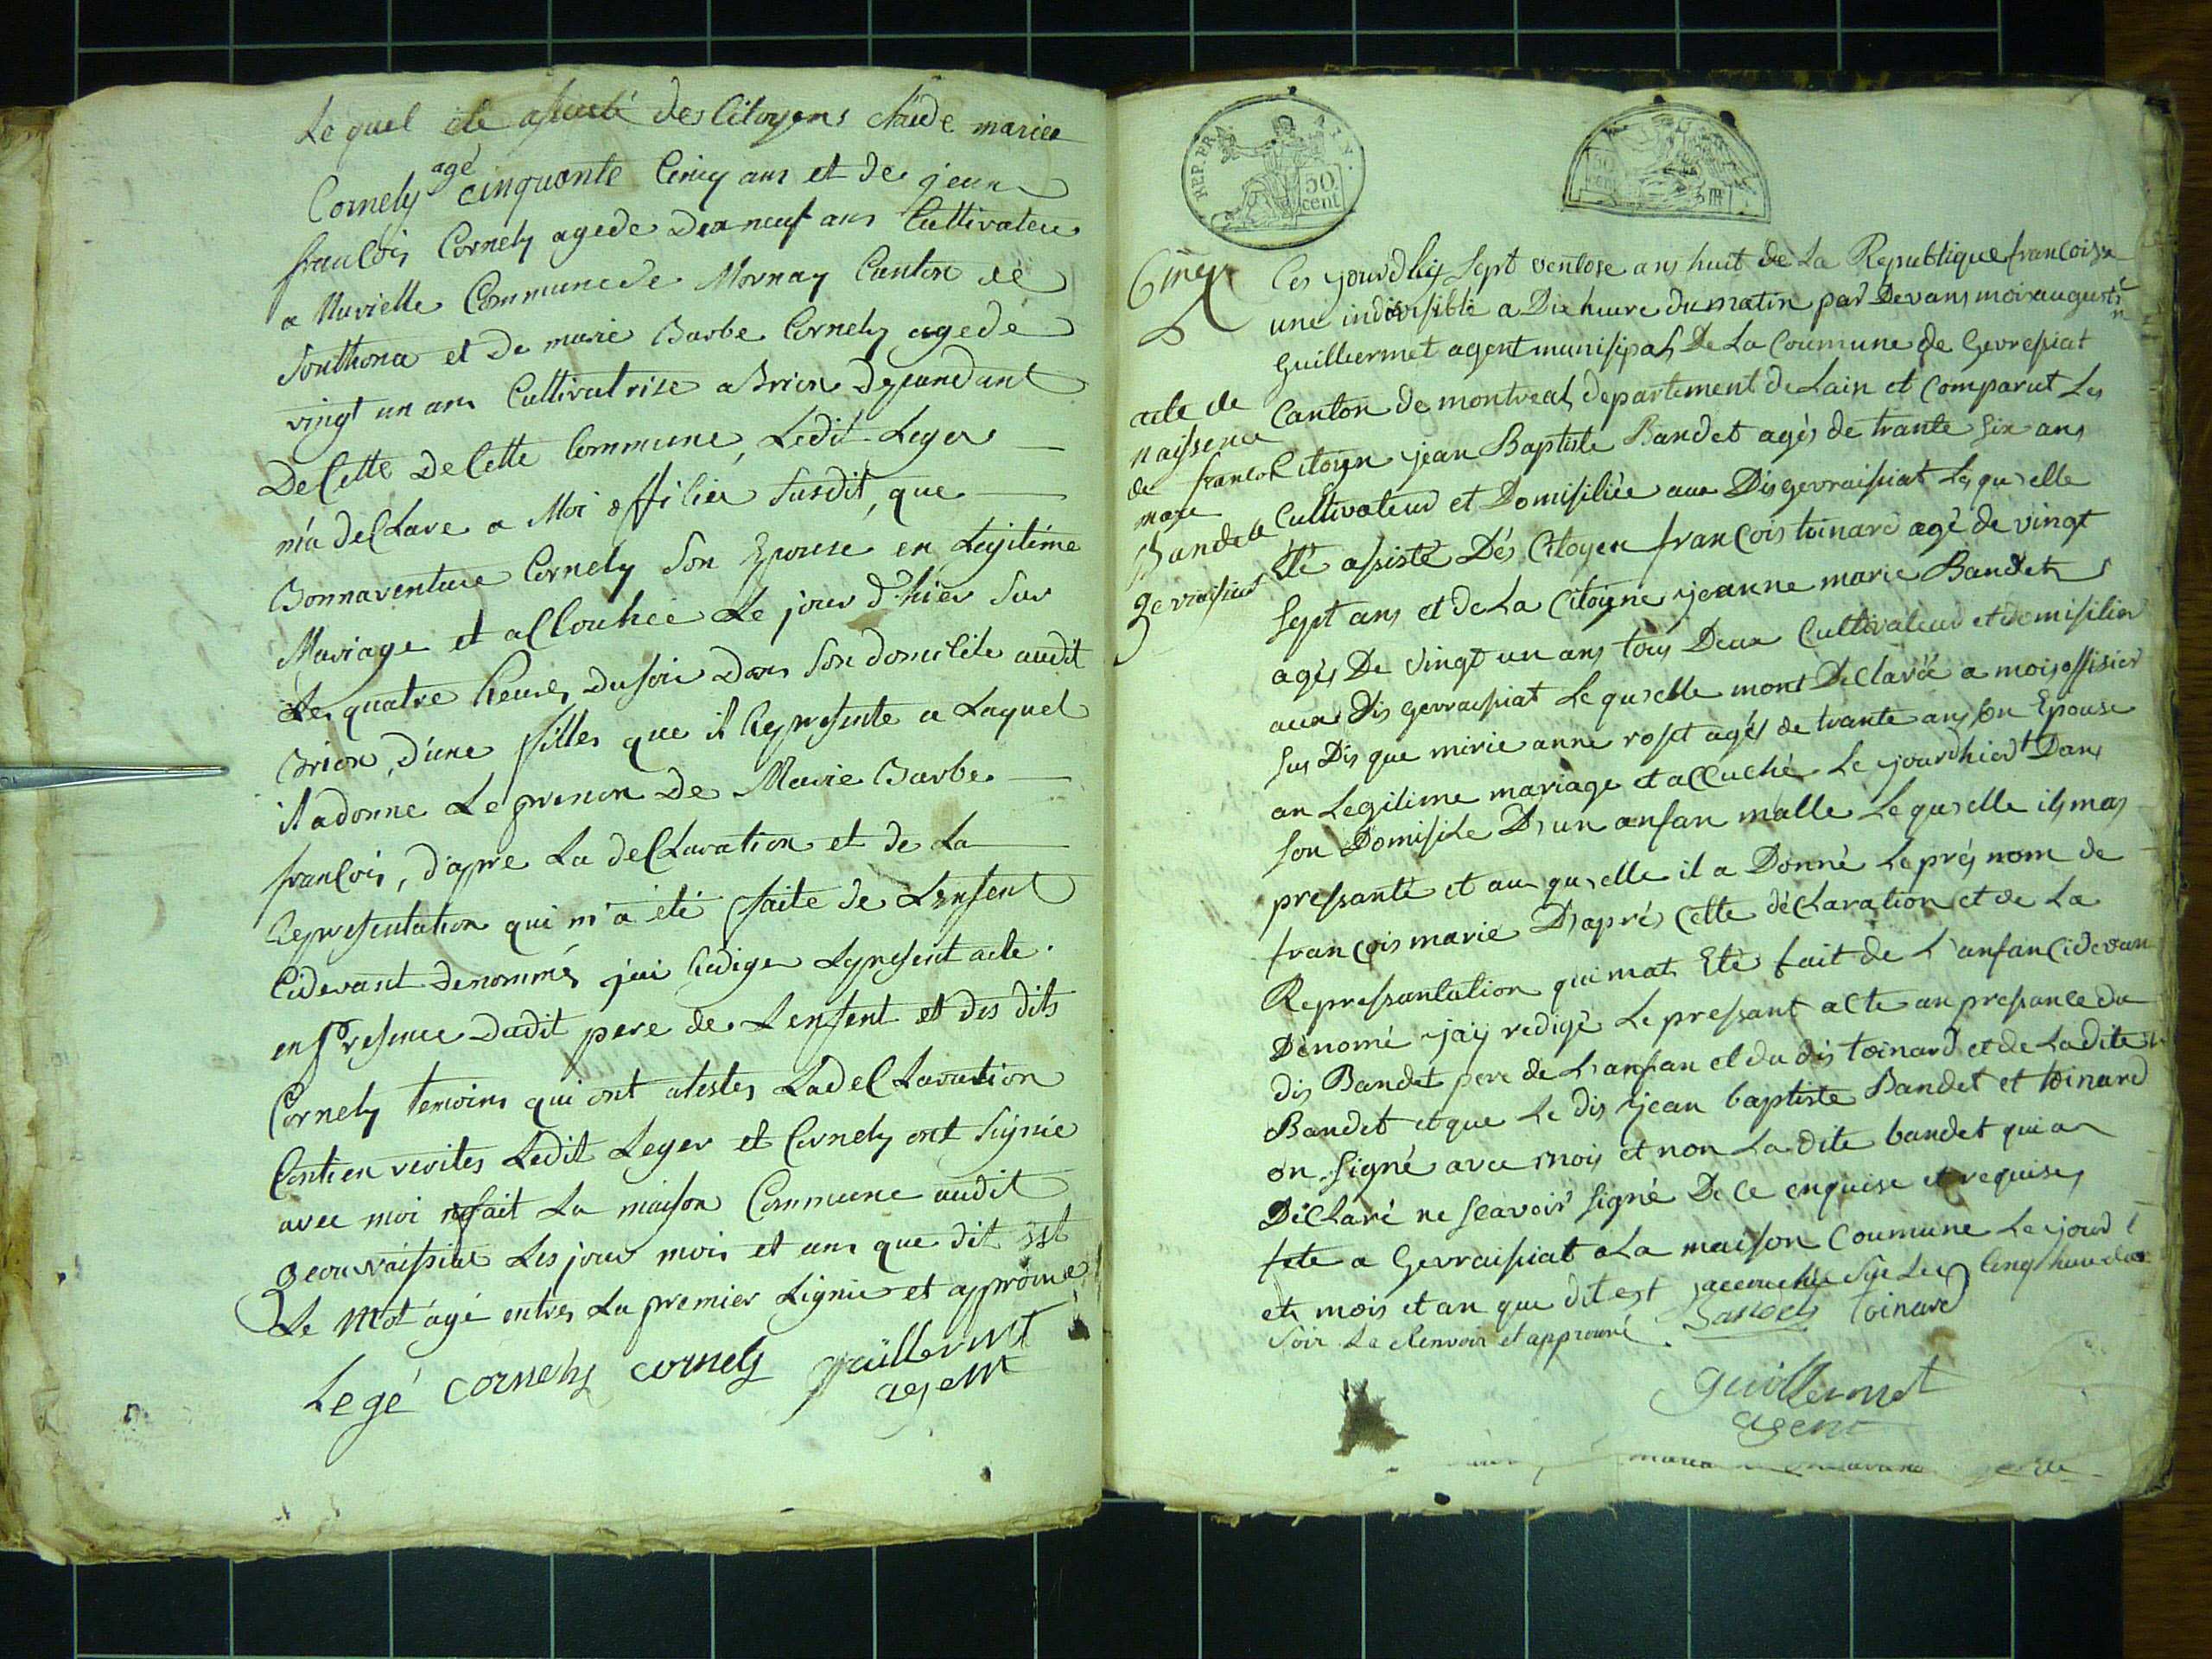 Le quel ete assisté des Citoyens Claude marie
agé
Cornely cinquante Cinq ans et de jean
franCois Cornely agede dix neuf ans Cultivateur
a Nuvielle Commune de Mornay Canton de
Sonthona et De marie Barbe Cornely agede
vingt un ans Cultivatrise a Brion Dependant
De Cette Commune, Ledit Leger
m'a deCLare a Moi officier susdit, que
Bonnaventure Cornely Son Epouse en Legitime
Mariage et aCCouchee Le jour d'hier Sur
Les quatre heures du soir Dans Son domicile audit
Brion, d'une filles que il Represente a Laquel
il a donne Le prenon De Marie Barbe
franCois, d'apre La deCLaration et de La
Representation qui m'a été faite de L'enfent
Cidevant denommés jai Redige Lepresent acte
en presence dudit pere de L'enfent et des dits
Cornely temoins qui ont atestes La deCLaration
Contien verites Ledit Leger et Cornely ont signie
avec moi fait La maison Commune audit
geouvraissiat Les jour mois et ans que dit est
Le mot agé entres La premier Lignie et approuvé
Legé cornely cornely guillermet
agent
REP. FRA
50.
cent
50
cent
acte de
naissence
de francois
marie
Bandet
gevraisiat
Ces jourdhuy Sept ventose ans huit de La Republique francoise
une indivisible a Dix heure du matin par Devans moi augustin
Guillermet agent munisipal De La Coumune de Gevresiat
Canton de montreal departement de Lain et Comparut Les
Citoyen jean Baptiste Bandet agés de trante Six ans
Cultivateur et Domisiliée aux Dis gevraisiat Lequ'elle
Eté asisté Dés Citoyen franCois toinard agé de vingt
Sept ans et de La Citoyene jeanne marie Bandet
agés De vingt un ans tous Deux Cultivateur et domisilier
aux Dis gevraisiat Le qu'elle mont DeClarée a mois offisier
Sus Dis que mirie anne roset agés de trante ans Son Epouse
an Legitime mariage et aCCuché Le jourdhier Dans
Son Domisile D'un anfan malle Lequ'elle ils mas
pressanté et au qu'elle il a Donné Le prés nom de
françois marie D'aprés Cette déCLaration et de La
Repressantation qui mat Eté fait de L'anfan Cidevan
Dénomé jay redigé Le pressant aCte an pressance du
dis Bandet pere de L'anfan et du dis toinard et de Ladite
Bandet et que Le dis jean baptiste Bandet et toinard
on Signé avec mois et non La dite bandet qui a
DéCLaré ne Scavoir Signé De Ce enquise et requise
fete a Gevraisiat a La maison Coumune Le jour
et mois et an que dit est accuchée Sur Les Cinq heure du
Soir Le Renvoir et approuvé Bandet toinard
guillermet
agent